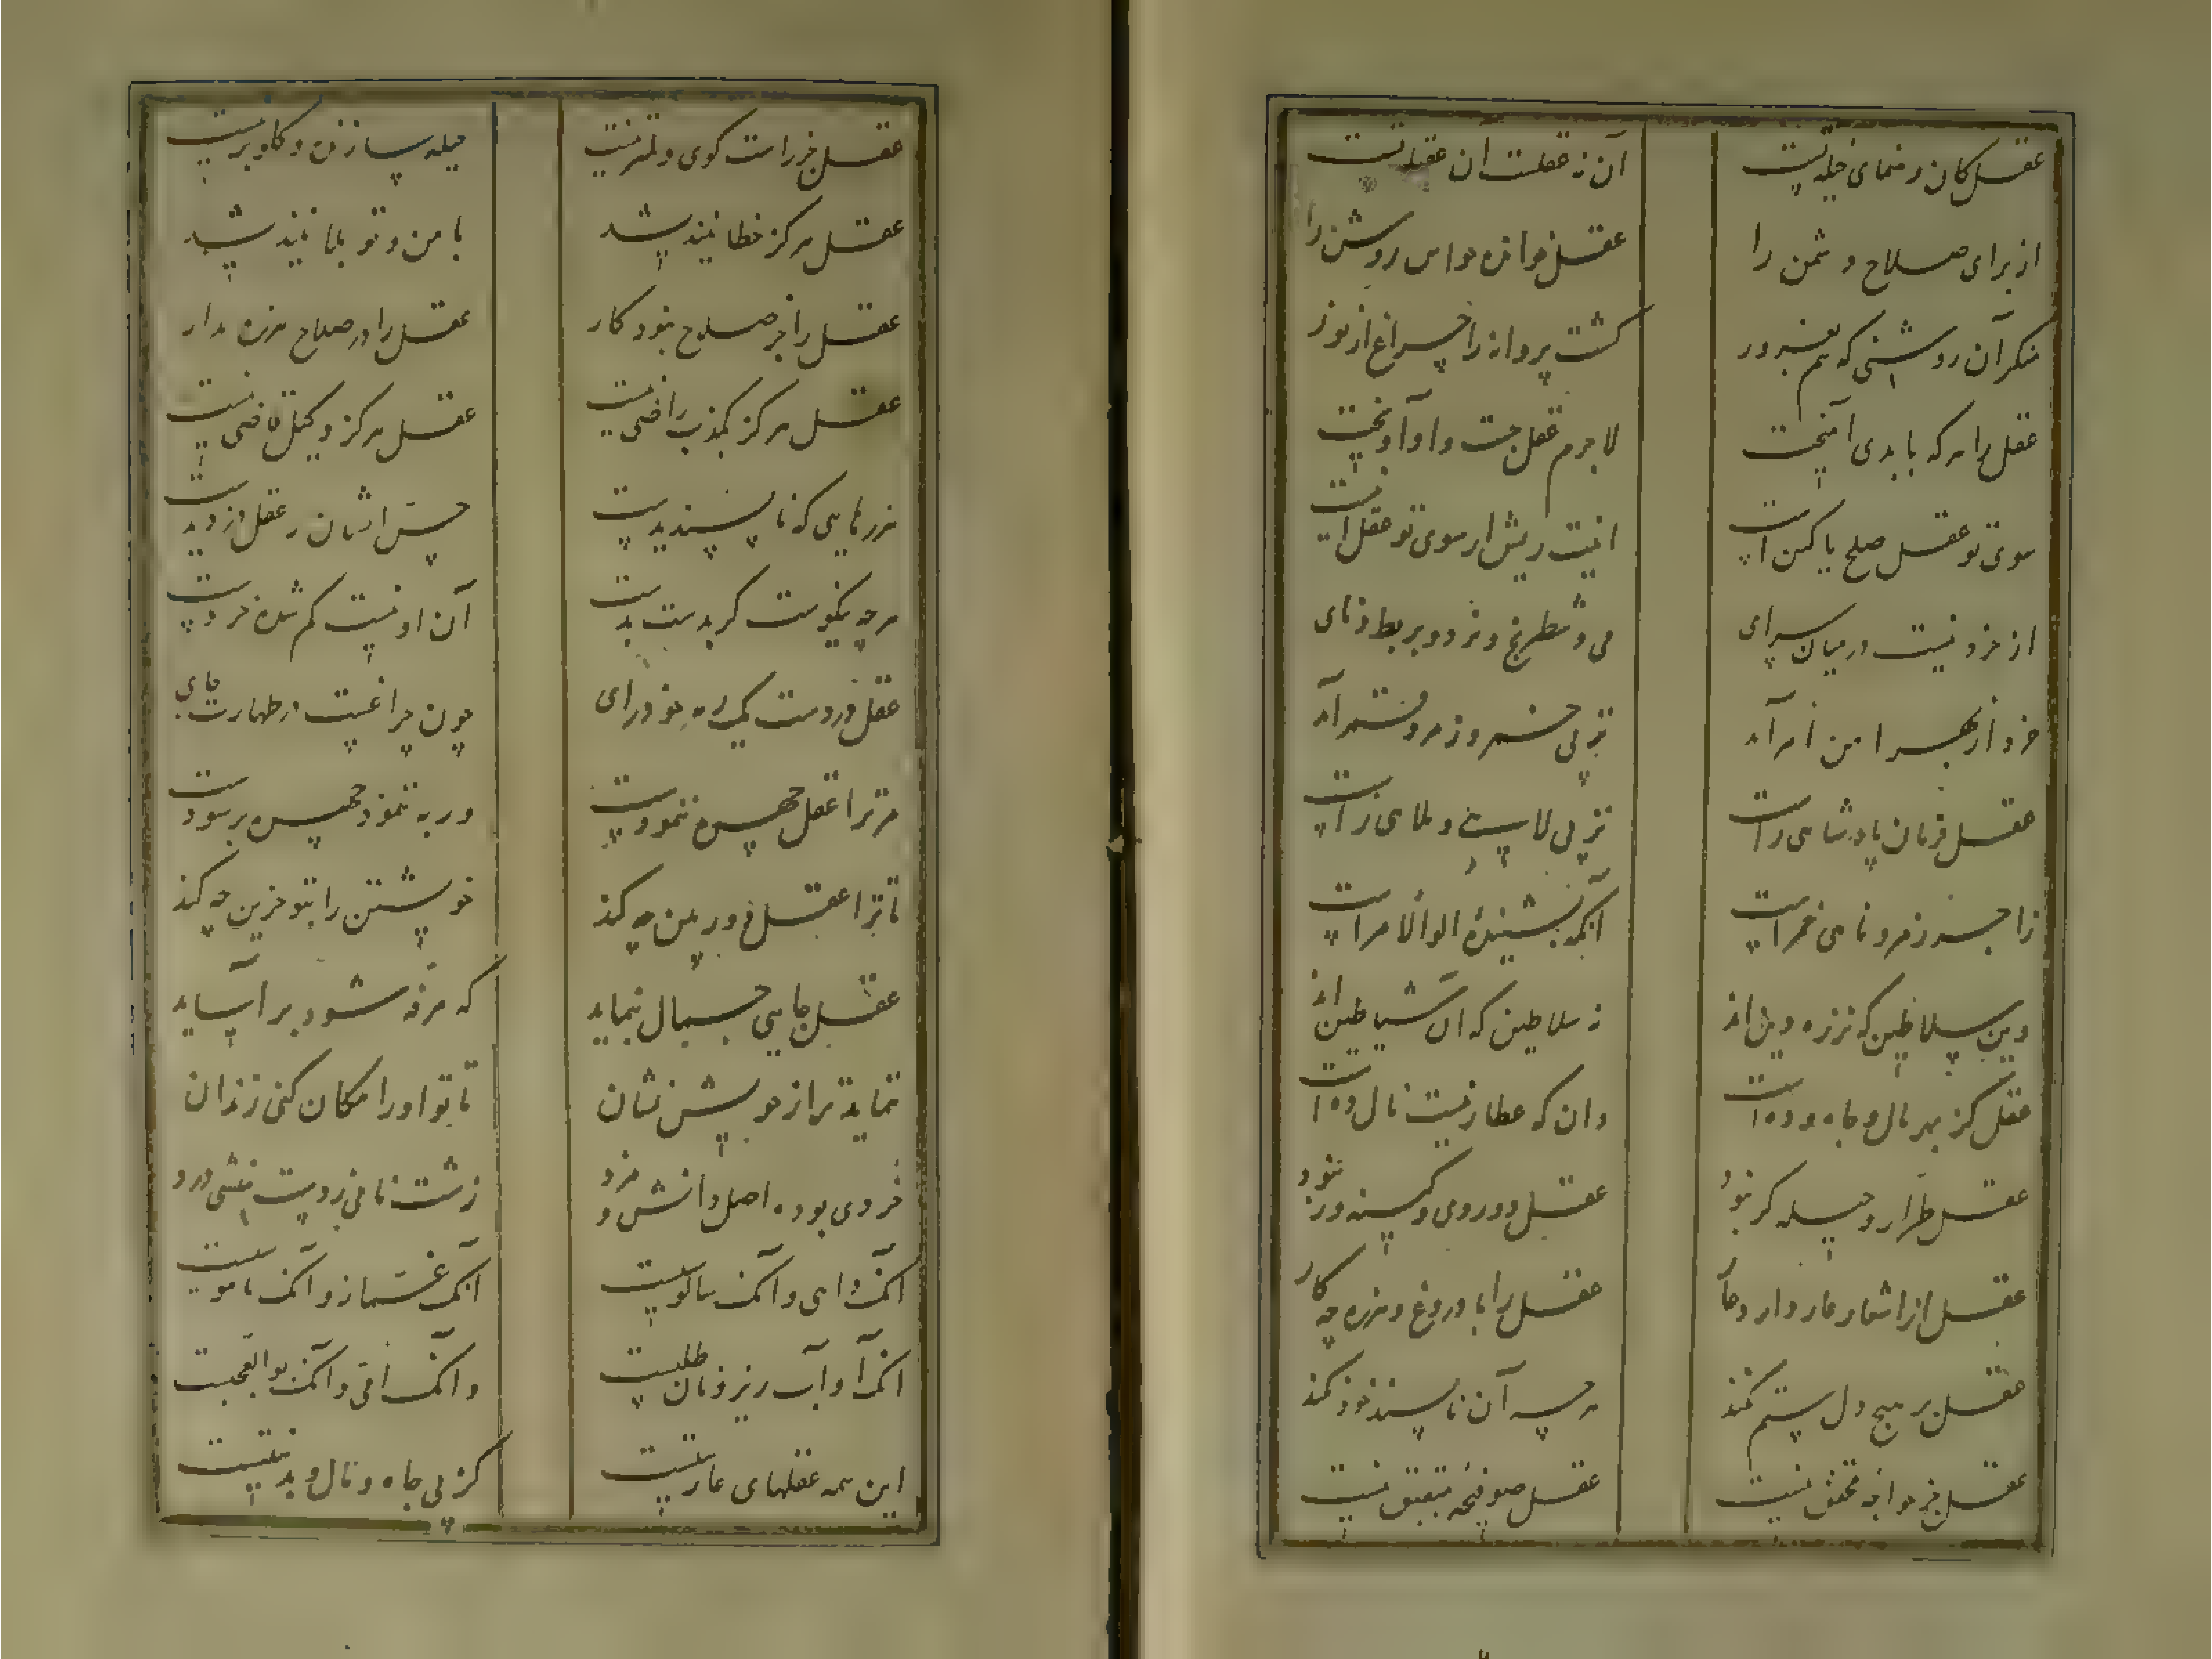 عقل کان رهنمای حیله تست آن نه عقلست آن عقیله تست
از برای صلاح دشمن را عقل خوانده حواس روشن را
منکر آن روشنی که هم بفروز گشت پروانه را چراغ از نوز
عقل را هر که با بدی آمیخت لاجرم عقل جست و او آویخت
سوی تو عقل صلح یا کین است اینت ریش ار سوی تو عقل اینست
از خرد نیست در میان سرای می و شطرنج و نرد و بربط و نای
خرد از بهر امن امر آمد نز پی خمر و زمر و قمر آمد
عقل فرمان پادشاهی راست نز پی لاست و ملاهی راست
زاجر زمر و ناهی خمر است آنکه بنشیننده اولوالامر است
وین سلاطین که نزره دین اند نه سلاطین که آن شیاطین اند
عقل کز بهر مال و جاه و ده است دان که عطار نیست نال ده است
عقل طرار و حیله گر نبود عقل دو روی و کینه ور نبود
عقل از اشعار عار دارد عار عقل را با دروغ و هرزه چه کار
عقل بر هیچ دل ستم نکند هر چه آن ناپسند خود نکند
عقل جز خواجه محقق نیست عقل صوفیچه متبقبق نیست
عقل جز راست گوی و نیست حیله ساز نده و کاو بر نیست
عقل هرگز خطا نیندیشد با من و تو بلا نیندیشد
عقل را جز صلاح نبود کار عقل را در صلاح هرزه مدار
عقل هرگز بکذب راضی نیست عقل هرگز وکیل قاضی نیست
هرزهایی که ناپسندیدست حس ایشان ز عقل دزدیدست
هر چه نیکوست گر بدست بدست آن او نیست گم شده خردست
عقل در دست یک رمه خودرای چون چراغیست در طهارت جای
مر ترا عقل چهره ننمودست ور به ننمود چهره بر سودست
تا ترا عقل دوربین چه کند خویشتن را بتو حزین چه کند
عقل جایی جمال ننماید که مرفه شود بر آساید
ننماید ترا ز خویش نشان تا تو او را مکان کنی زندان
خردی بوده اصل دانش و مزد زشت نامی ز دست منشی درد
آنک دامی و آنک سالوسیست آنک غماز و آنک ناموسیست
آنک آواب ریز و نان طلبیست و آنک و آنک بوالعجبیست
این همه عقلهای عاریتیست کز پی جاه و مال و بد نیتیست